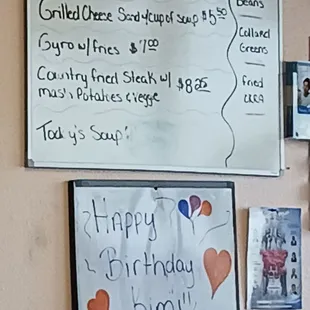 Grilled Cheese Sand w/cup of soup $5.50
Gyro w/fries $7.00
Country fried Steak w/ $8.25
mash Potatoes & veggie
Today's Soup:
Beans
Collard
Greens
fried
Okra
Happy
Birthday
Kim!!!